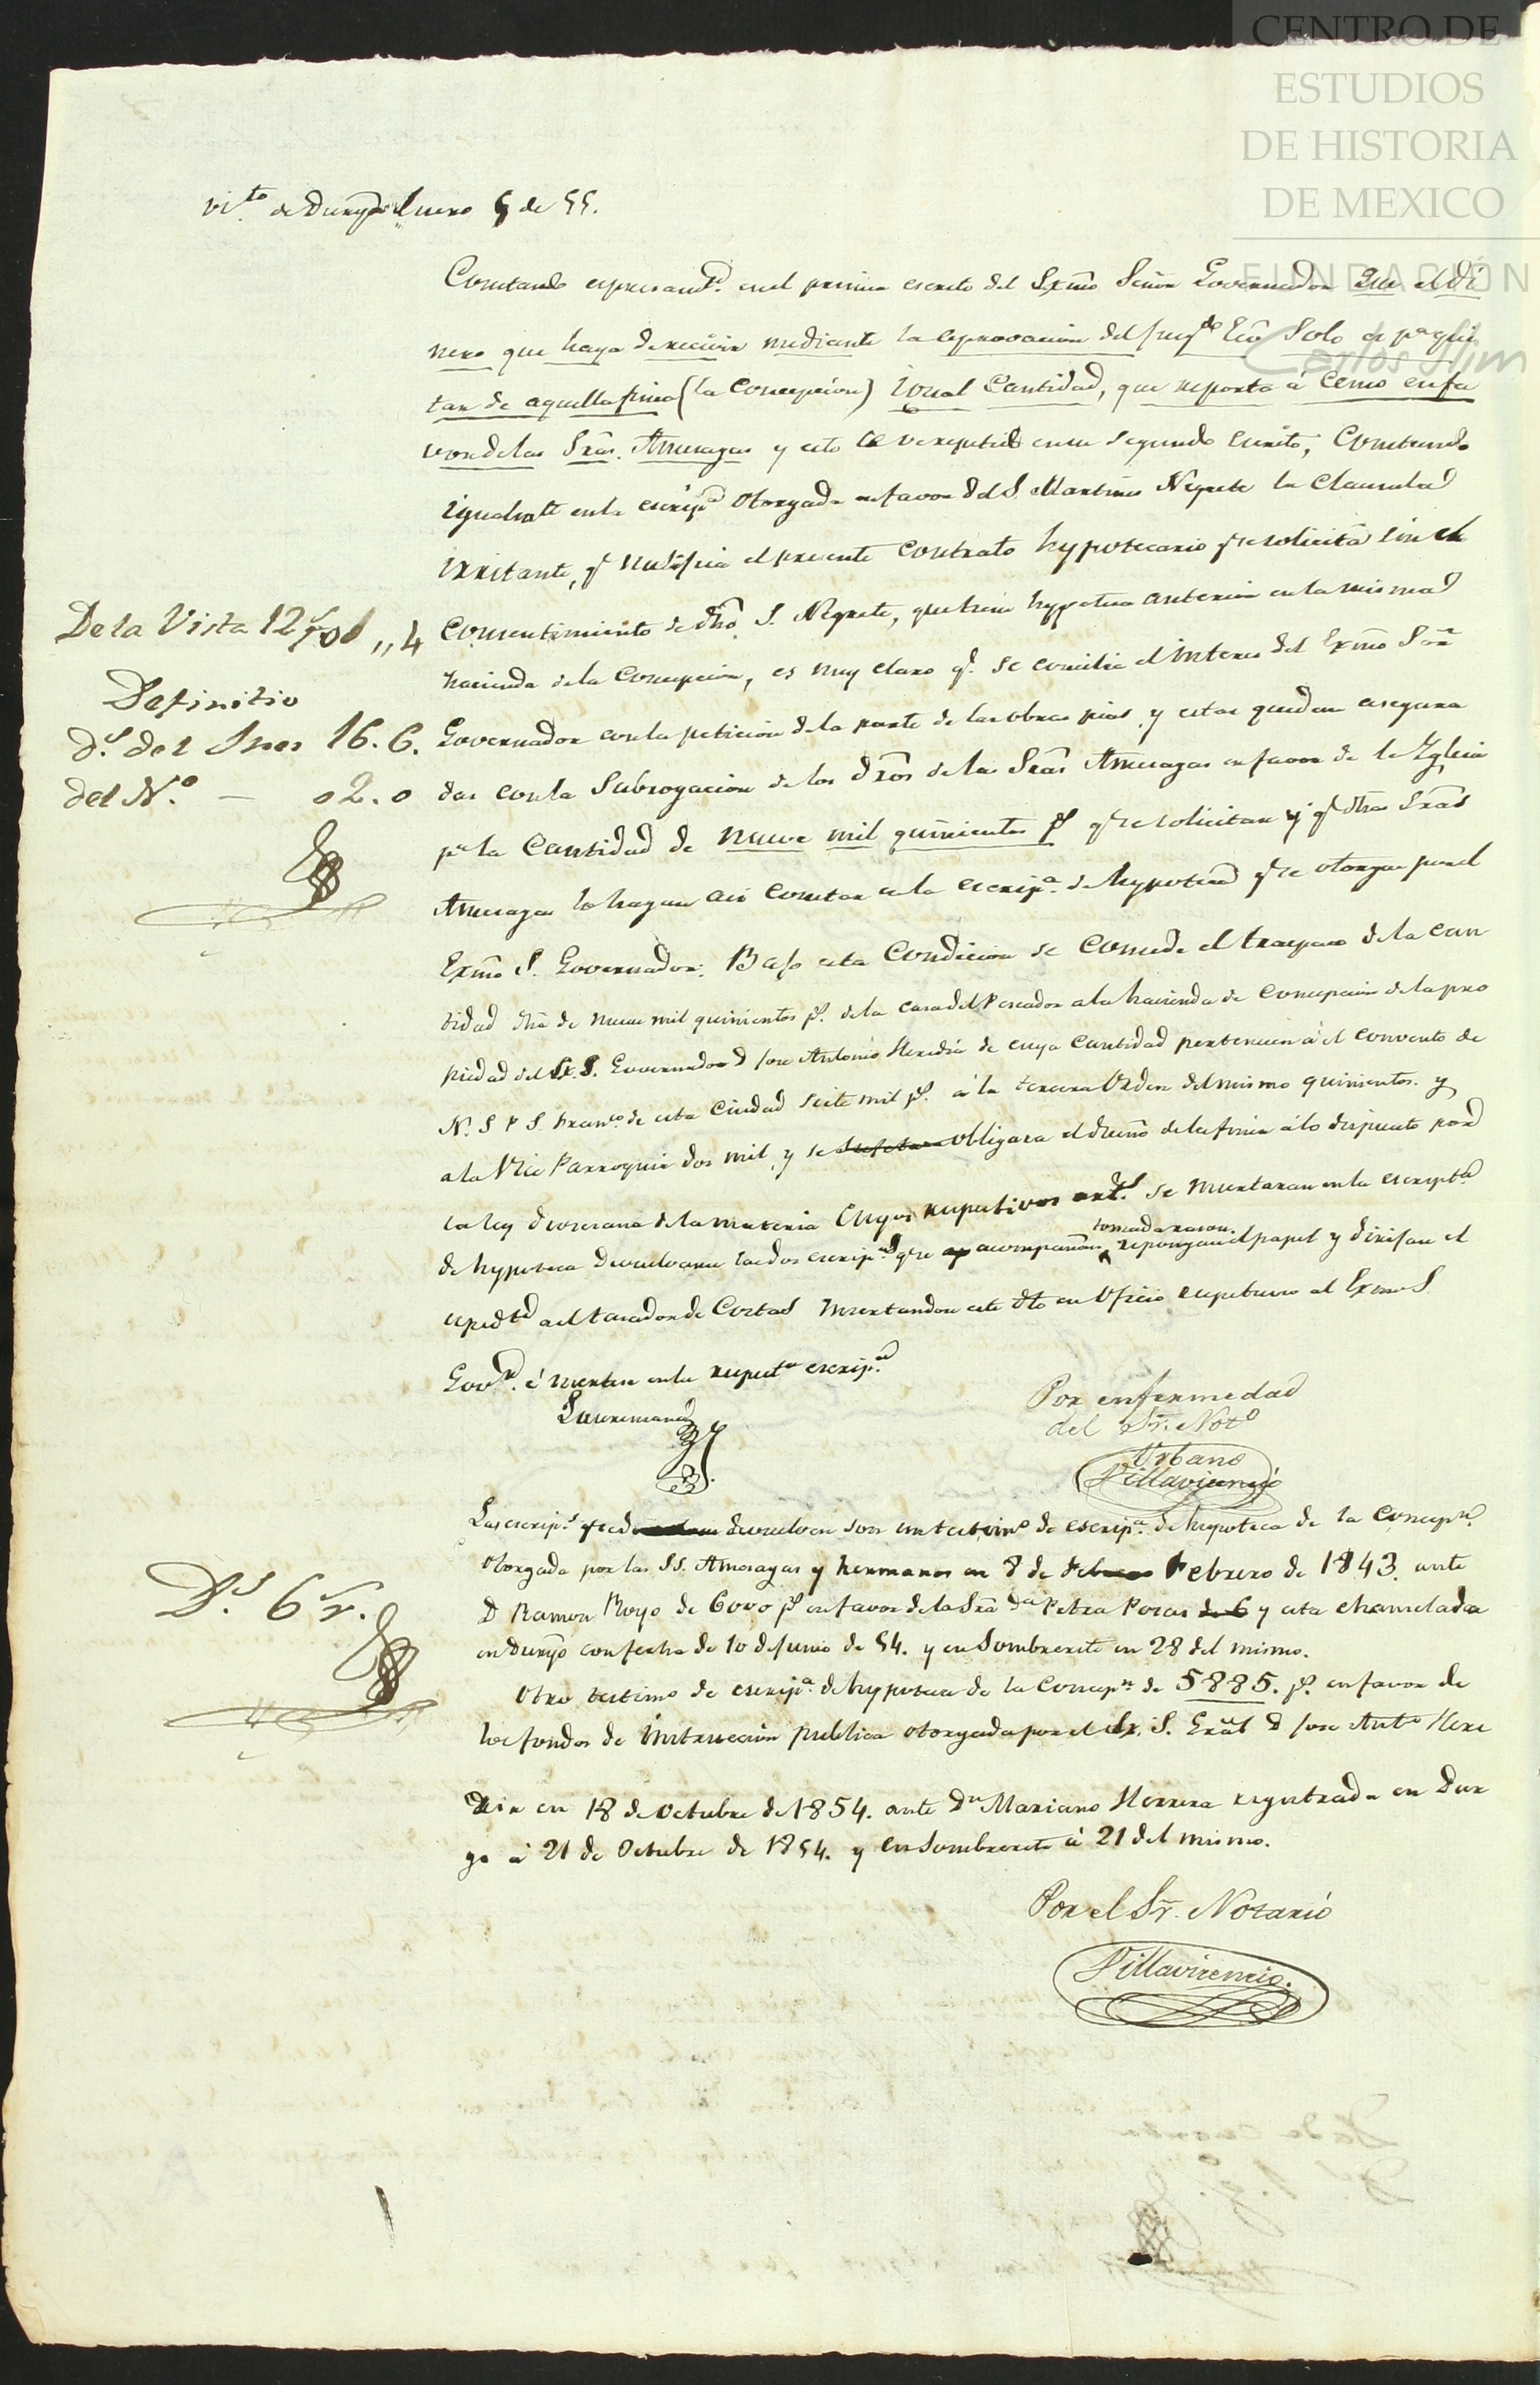 CENTRO DE
ESTUDIOS
DE HISTORIA
DE MEXICO
FUNDACIÓN
Carlos Slim
Vi.to de Durgo Enero 5 de 55.
Constando espresamte. en el primer escrito del Exmo Señor Governador que el di
nero que haya de recivir mediante la aprovacion del Juzgdo Eco Solo es pa. qui
tar de aquella finca (la Concepcion) igual Cantidad, que reporta á Censo en fa
vor de las Sras. Amezagas y esto se ve repetido en su segundo escrito; Constando
igualmte en la escripa otorgada en favor del S. Martines Negrete la Clausula
irritante, q nulifica el presente contrato hypotecario q se solicita sin el
Consentimiento de dho. S. Negrete, que tiene hypoteca anterior en la misma
hacienda de la Concepcion, es muy claro q. se concilia el interes del Exmo Sor
Governador con la peticion de la parte de las obras pias y estas quedan asegura
das con la Subrogacion de los dros de las Sras Amezagas en favor de la Yglesia
pr la Cantidad de nueve mil quinientos ps q se solicitan y q dhas Sras
Amezagas lo hagan asi constar en la escripa. de hypoteca q se otorgue por el
Exmo S. Governador. Bajo esta Condicion se Concede el traspaso de la can
tidad dha de nueve mil quinientos ps. de la casa del Pescador a la hacienda de Concepcion de la pro
piedad del Ex. S. Governador D Jose Antonio Heredia de cuya Cantidad pertenecen á el convento de
N. S P S. Franco. de esta Ciudad siete mil ps. á la tercera Orden del mismo quinientos y
a la Vice Parroquia dos mil, y se obligara el dueño de la finca á lo dispuesto por
la ley diocesana de la materia cuyos respectivos arts. se insertaran en la escripta
tomada razon.
de hypoteca Devuelvanse las dos escripas q se acompañan, repongan el papel y dirijan el
espedte al tasador de Costas insertandose este dto en Oficio respectivo al Exmo S.
Govor. é insertese en la respecta escripa
De la Vista 12 fos ,, 4
Definitio
ds. del Sres 16. 6.
del No. — 02. 0
Por enfermedad
del Sr. Noto
Urbano
Villavicencio
Las escrips. q se devuelven son un testimo de escripa. de hypoteca de la Concepn.
otorgada por las SS. Amezagas y hermanos en 8 de Febrero de 1843. ante
D Ramon Royo de 6000 ps en favor de la Sra Da Petra Poras y esta chancelada
en Durgo con fecha de 10 de Junio de 54. y en Sombrerete en 28 del mismo.
Otro testimo de escripa. de hypoteca de la Concepn de 5885. ps. en favor de
los fondos de instruccion publica otorgada por el Ex. S. Gral D Jose Anto. Here
dia en 18 de Octubre de 1854. ante Dn Mariano Herrera registrada en Dur
go á 21 de Octubre de 1854. y en Sombrerete á 21 del mismo.
Ds. 6 r.
Por el Sr. Notario
Villavicencio.